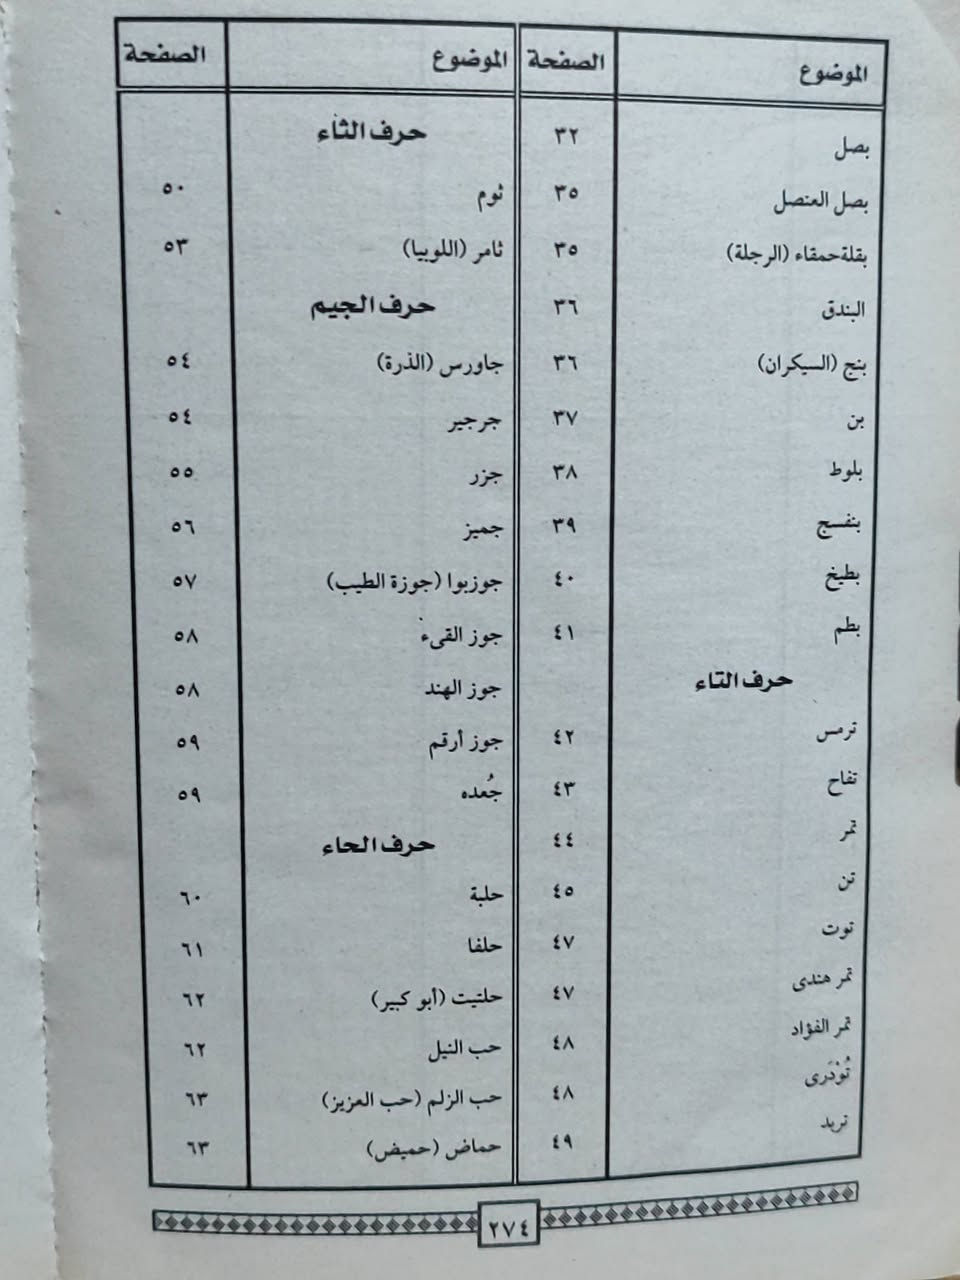 الموضوع الصفحة
بصل ٣٢
بصل العنصل ٣٥
بقلة حمقاء (الرجلة) ٣٥
البندق ٣٦
بنج (السيكران) ٣٦
بن ٣٧
بلوط ٣٨
بنفسج ٣٩
بطيخ ٤٠
بطم ٤١
حرف التاء
ترمس ٤٢
تفاح ٤٣
تمر ٤٤
تن ٤٥
توت ٤٧
تمر هندى ٤٧
تمر الفؤاد ٤٨
تُوْدَرى ٤٨
تربد ٤٩
الموضوع الصفحة
حرف الثاء
ثوم ٥٠
ثامر (اللوبيا) ٥٣
حرف الجيم
جاورس (الذرة) ٥٤
جرجير ٥٤
جزر ٥٥
جميز ٥٦
جوزبوا (جوزة الطيب) ٥٧
جوز القىء ٥٨
جوز الهند ٥٨
جوز أرقم ٥٩
جُعده ٥٩
حرف الحاء
حلبة ٦٠
حلفا ٦١
حلتيت (أبو كبير) ٦٢
حب النيل ٦٢
حب الزلم (حب العزيز) ٦٣
حماض (حميض) ٦٣
٢٧٤